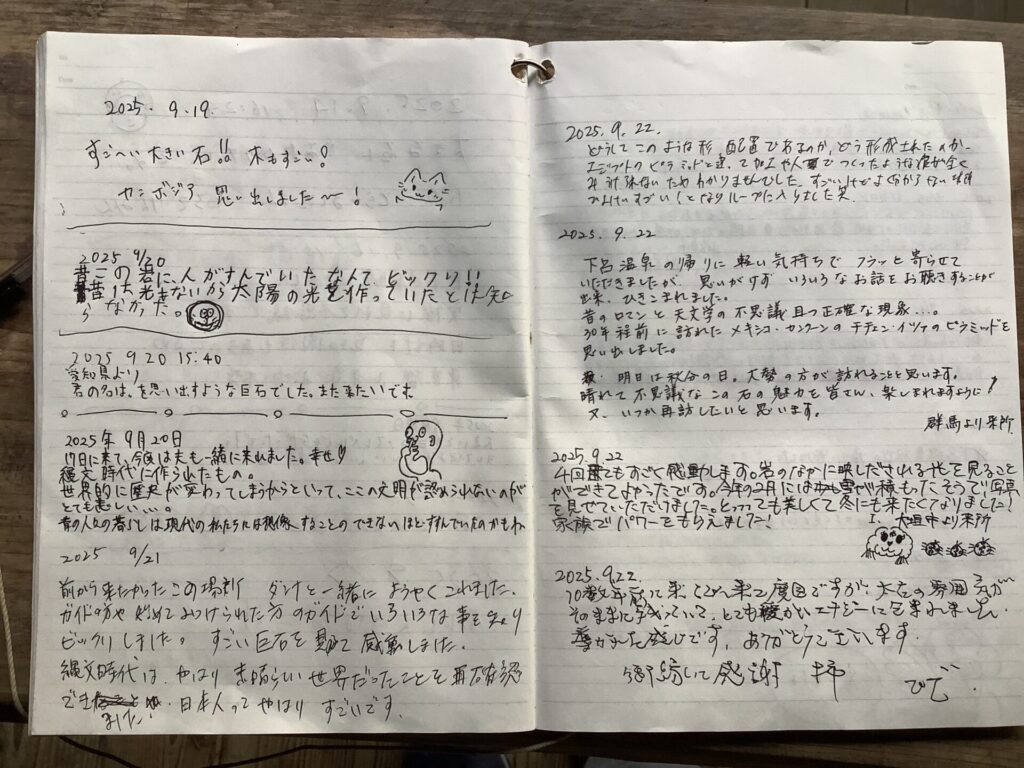 2025. 9.19.
すごーい 大きい石!! 木もすごい!
カンボジア 思い出しました〜!
2025 9/20
昔この岩に、人がすんでいたなんて ビックリ!!
昔は 光きないから 太陽の光を作っていたとは知
らなかった。
2025 9.20 15:40
愛知県より
君の名は、を思い出すような巨石でした。また来たいです。
2025年 9月20日
17日に来て、今度は夫も一緒に来れました。幸せ♡
縄文時代に作られたもの。
世界的に歴史が変わってしまうからといって、ここの文明が認められないのが
とても悲しい....。
昔の人々の暮しは現代の私たちには想像することのできないほどすすんでいたのかもね
2025 9/21
前から来たかったこの場所 ダンナと一緒に ようやくこれました。
ガイドの方や 始めてみつけられた方のガイドで いろいろな事を知り
ビックリしました。 すごい巨石を見て 感動しました。
縄文時代は、やはり すばらしい世界だったことを 再確認
でき
ました! 日本人って やはり すごいです。
2025. 9. 22.
どうして このような 形、配置であるのか、どう形成されたのか、
エジプトの ピラミッドと違って 加工や人 でつくったような
わかりませんでした。すごいけどよく分からない
すごい ループに入りました 笑
2025. 9. 22
下呂温泉の帰りに 軽い気持ちで フラッと 寄らせて
いただきましたが、思いがけず いろいろな お話を お聴きすることが
出来、ひきこまれました。
昔のロマンと 天文学の 不思議 且つ 正確な 現象...。
30年程前に 訪れた メキシコ・カンクーンの チチェン・イツァの ピラミッドを
思い出しました。
明日は 秋分の日。大勢の方が 訪れることと 思います。
晴れて 不思議な この石の 魅力を 皆さん、楽しまれますように!
又、いつか 再訪したいと 思います。
群馬より来所
2025.9.22
4回 てもすごく感動します。岩のなかに映しだされる光を見ること
ができてよかったです。今年の2月には 雪が積もったそうで写真
を見せていただけました。とっても美しくて冬にも来たくなりました!
家族でパワーをもらえました!
I. 大垣市より来所
2025.9.22.
10数年 来 2度目ですが、太古の雰囲気が
そのままに 、とても暖かいエナジーに包まれました。
感じです、ありがとうございます。
感謝